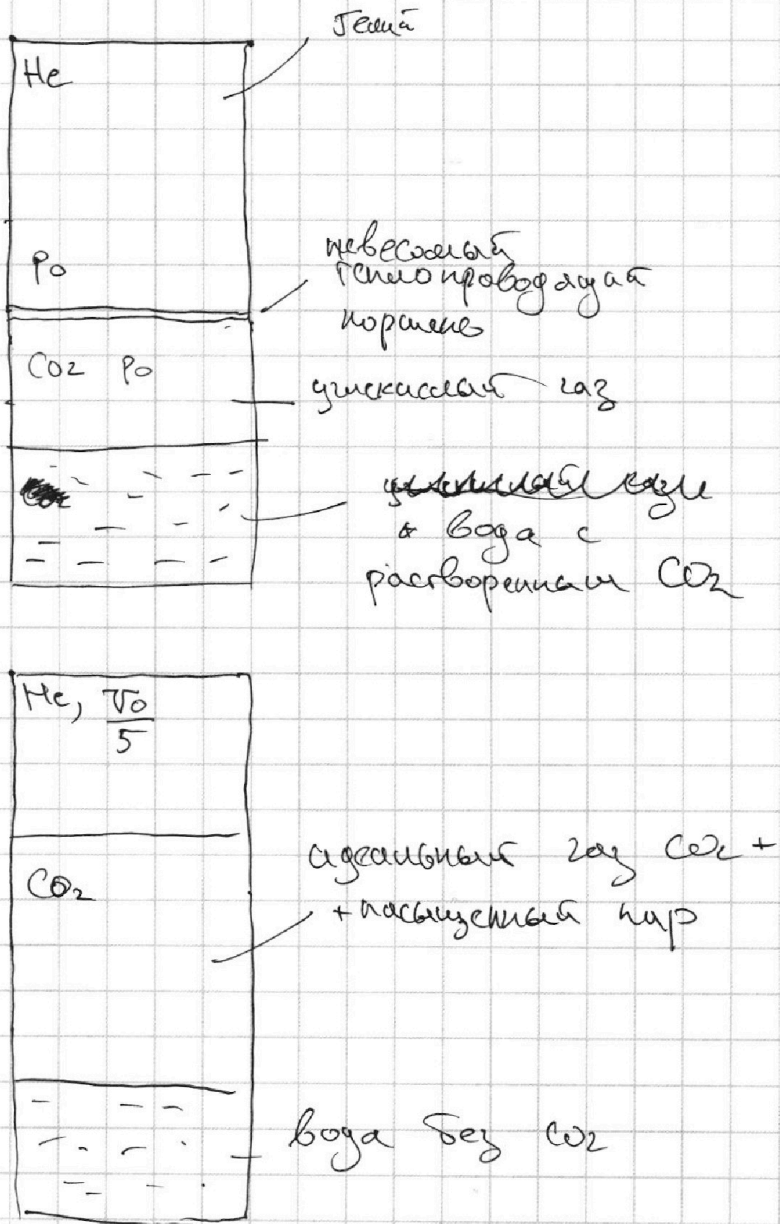 Гелий
He
P₀
невесомый
теплопроводящий
поршень
CO₂ P₀
углекислый газ
вода с
растворенным CO₂
He, V₀/5
идеальный газ CO₂ +
+ насыщенный пар
CO₂
вода без CO₂